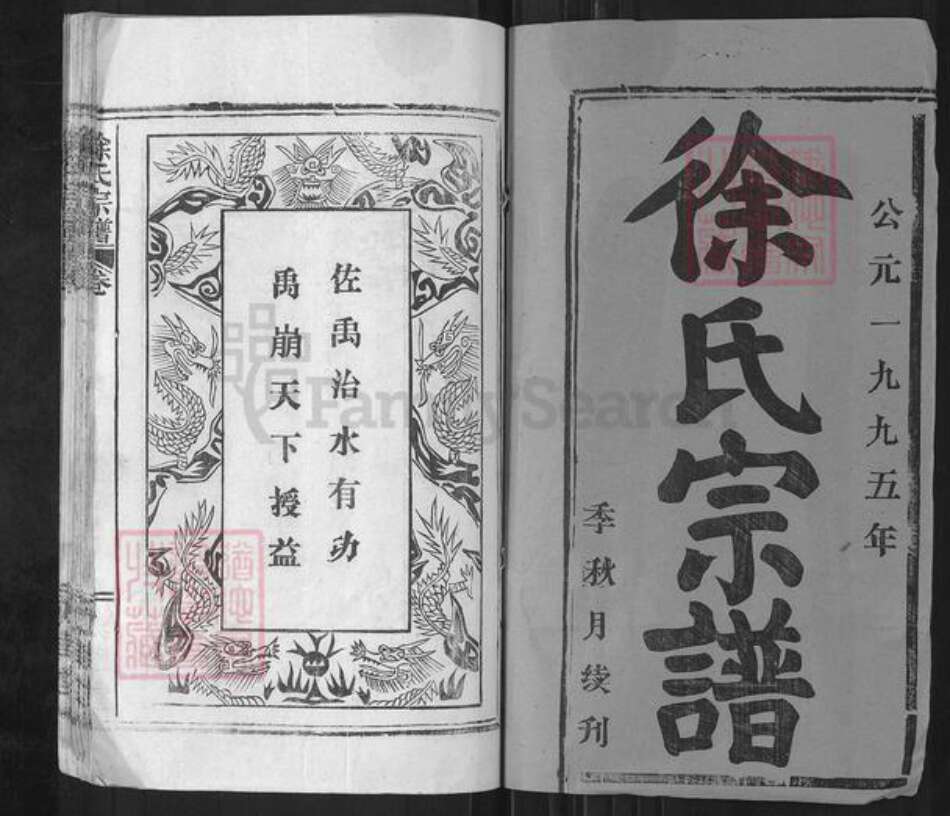 公元一九九五年
徐氏宗譜
季秋月续刊
佐禹治水有功
禹崩天下授益
徐氏宗譜
卷
FamilySearch